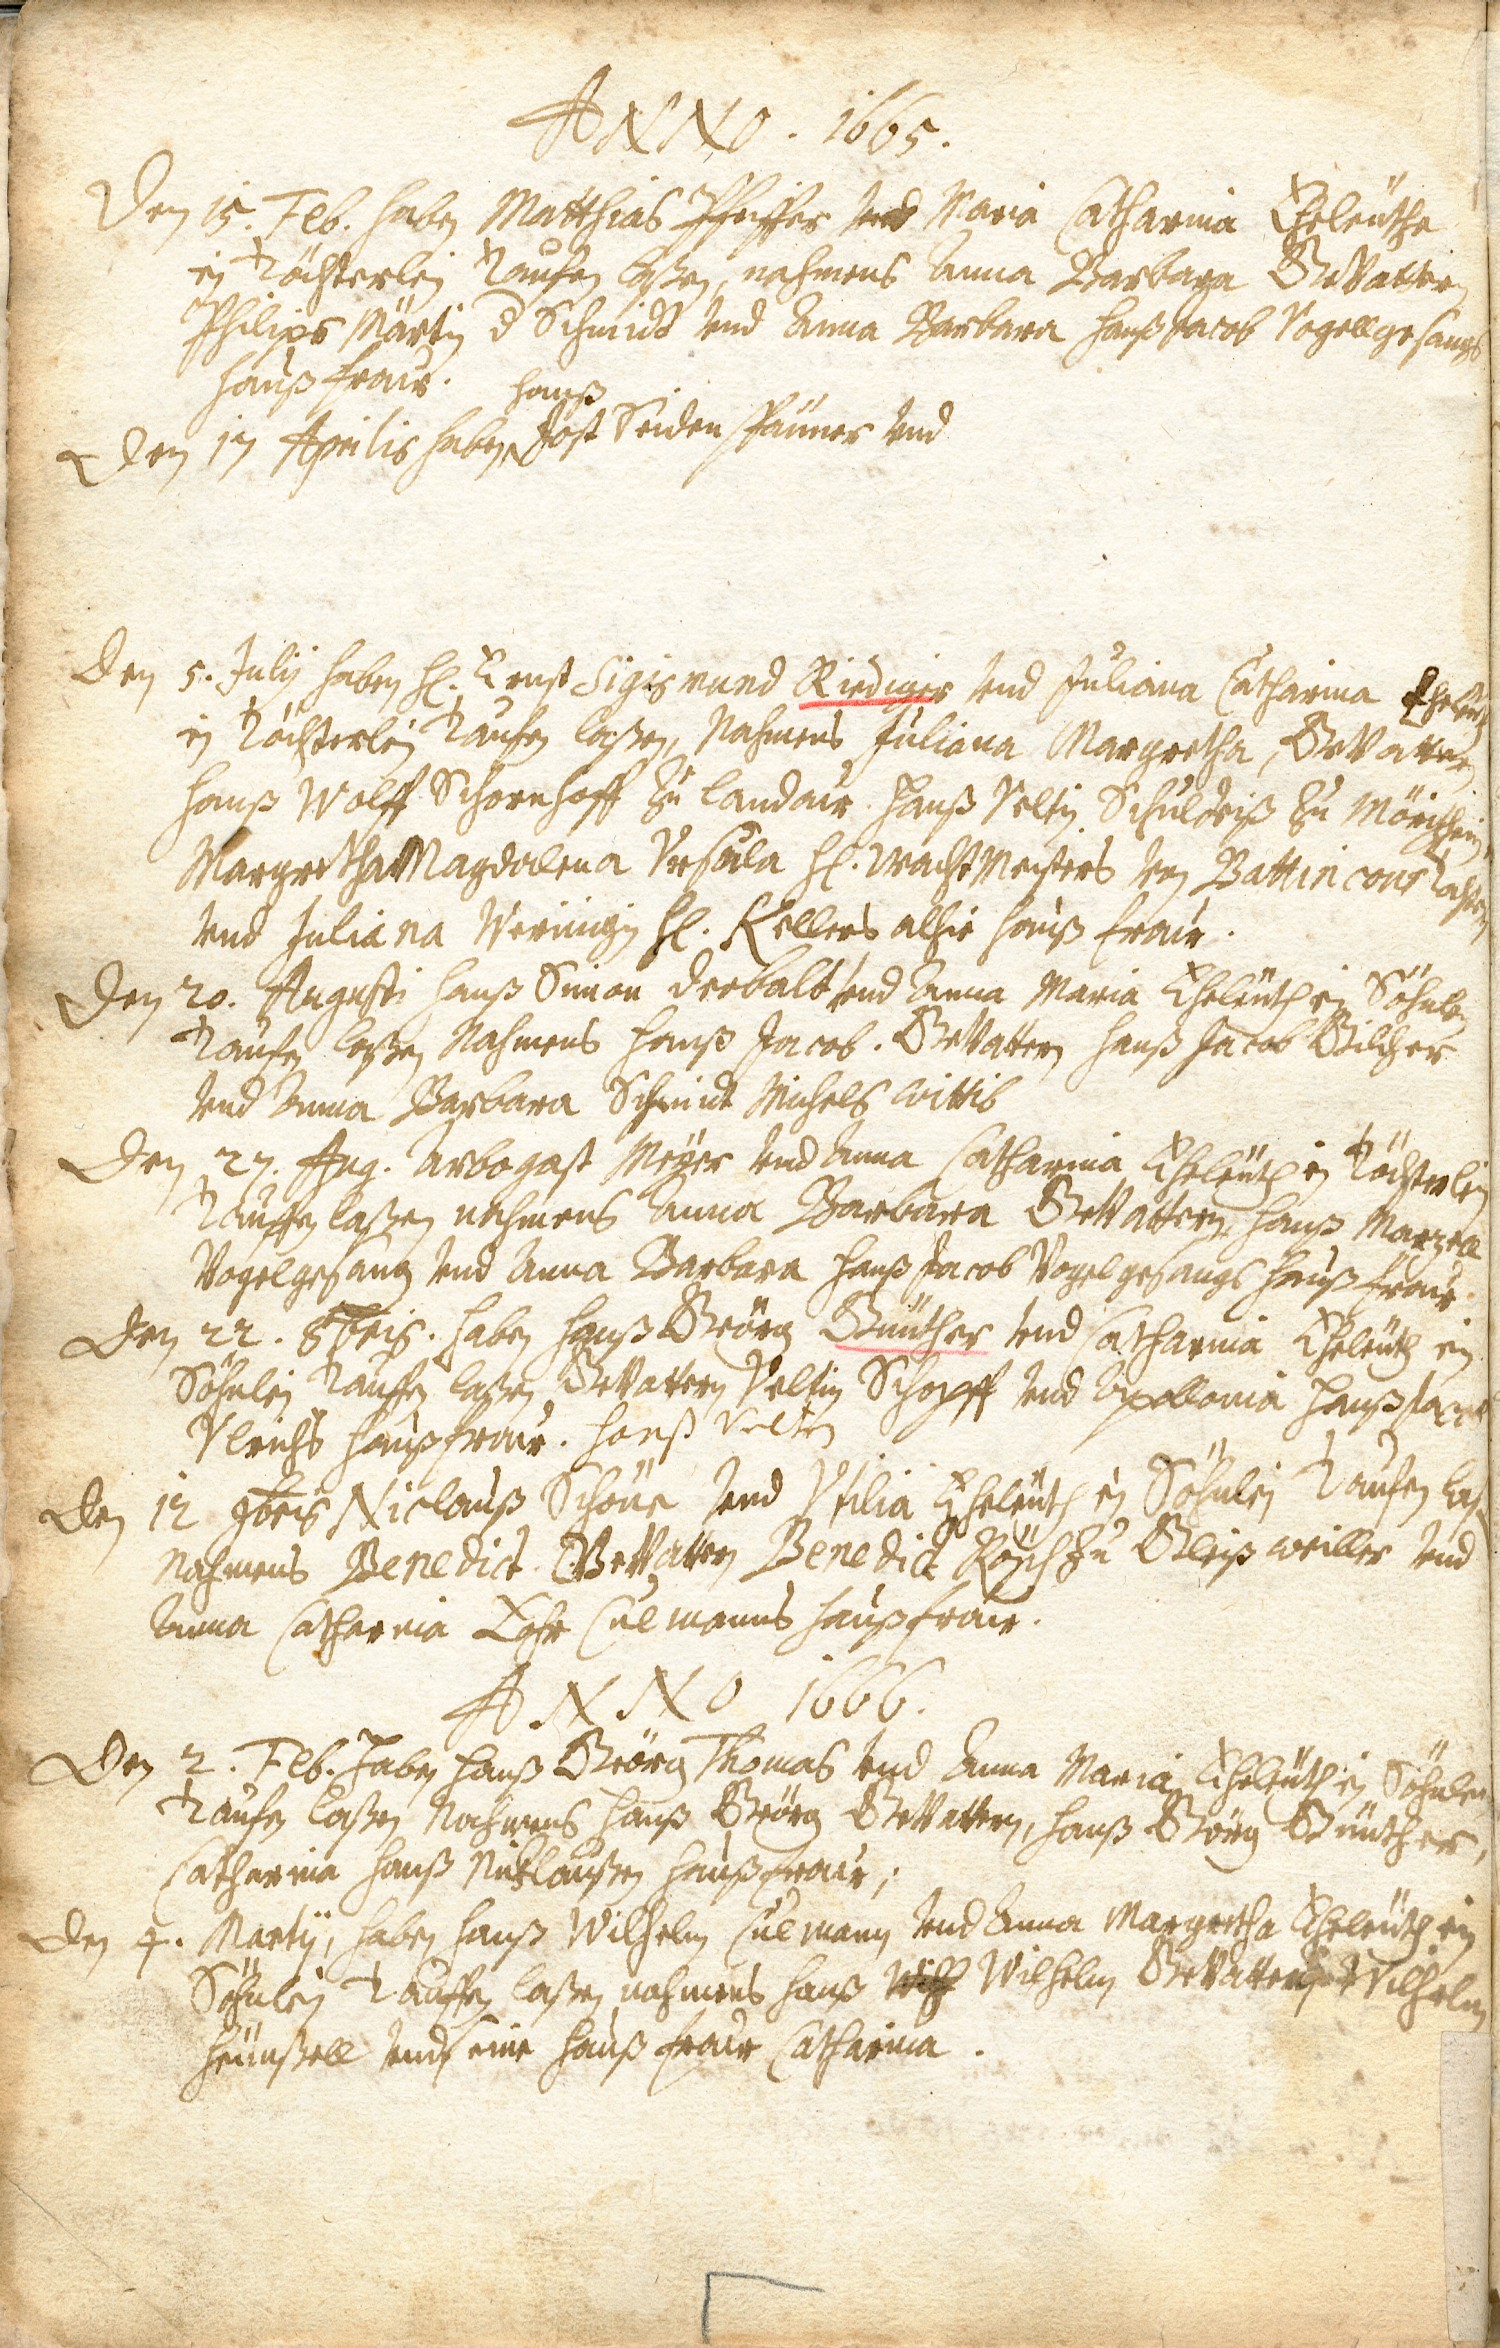 ANNO . 1665.
Den 15. Feb. haben Matthias Pfeiffer vnd Maria Catharina Eheleüthe
ein Töchterlein Taufen laßen, nahmens Anna Barbara Gevattern
Philips Märtin d Schmidt vnd Anna Barbara Hanß Jacob Vogellgesangs
haußfraw.
hanß
Den 17 Aprilis haben Jost Seidenspinner vnd
Den 5. Julij haben H. Ernst Sigismund Riediger vnd Juliana Catharina Eheleüth
ein Töchterlein Taufen laßen, Nahmens Juliana Margretha, Gevattern
Hanß Wolff Schornhoff zu Landaw. Hanß Veltin Schuldeiß zu Mörtzheim,
Margretha Magdalena Vrsula H. Wachtmeisters von
vnd Juliana H. Kellers alhie haußfraw.
Den 20. Augusti Hanß Simon Derbalt vnd Anna Maria Eheleüth ein Söhnlein
Taufen laßen Nahmens Hanß Jacob. Gevattern Hanß Jacob Gilcher
vnd Anna Barbara Schmidt Michels wittib
Den 27. Aug. Arbogast Meÿer vnd Anna Catharina Eheleüth ein Töchterlein
Tauffen laßen nahmens Anna Barbara Gevattern, Hanß Marzell
Vogelgesang vnd Anna Barbara Hanß Jacob Vogelgesangs haußfraw.
Den 22. 8bris. haben Hanß Geörg Günther vnd Catharina Eheleüth ein
Söhnlein Tauffen laßen Gevattern Veltin Schopff vnd Apollonia Hanß Jacob
Vlrichs haußfraw. Hanß Velten
Den 12 9bris Niclauß Schöne vnd Vtilia Eheleüth ein Söhnlein Taufen laß
Nahmens Benedict. Gevattern Benedict zu Gleißweiller vnd
Anna Catharina Culmanns haußfraw.
ANNO 1666.
Den 2. Feb. Haben Hanß Geörg Thomas vnd Anna Maria Eheleüth ein Söhnlein
Taufen laßen Nahmens Hanß Geörg Gevattern, Hanß Görg Günther,
Catharina Hanß Nicklaußen haußfraw;
Den 4. Martij, haben Hanß Wilhelm Culmann vnd Anna Margretha Eheleüth ein
Söhnlein Tauffen laßen nahmens Hanß Wilhelm Gevattern Wilhelm
vnd seine haußfraw Catharina.